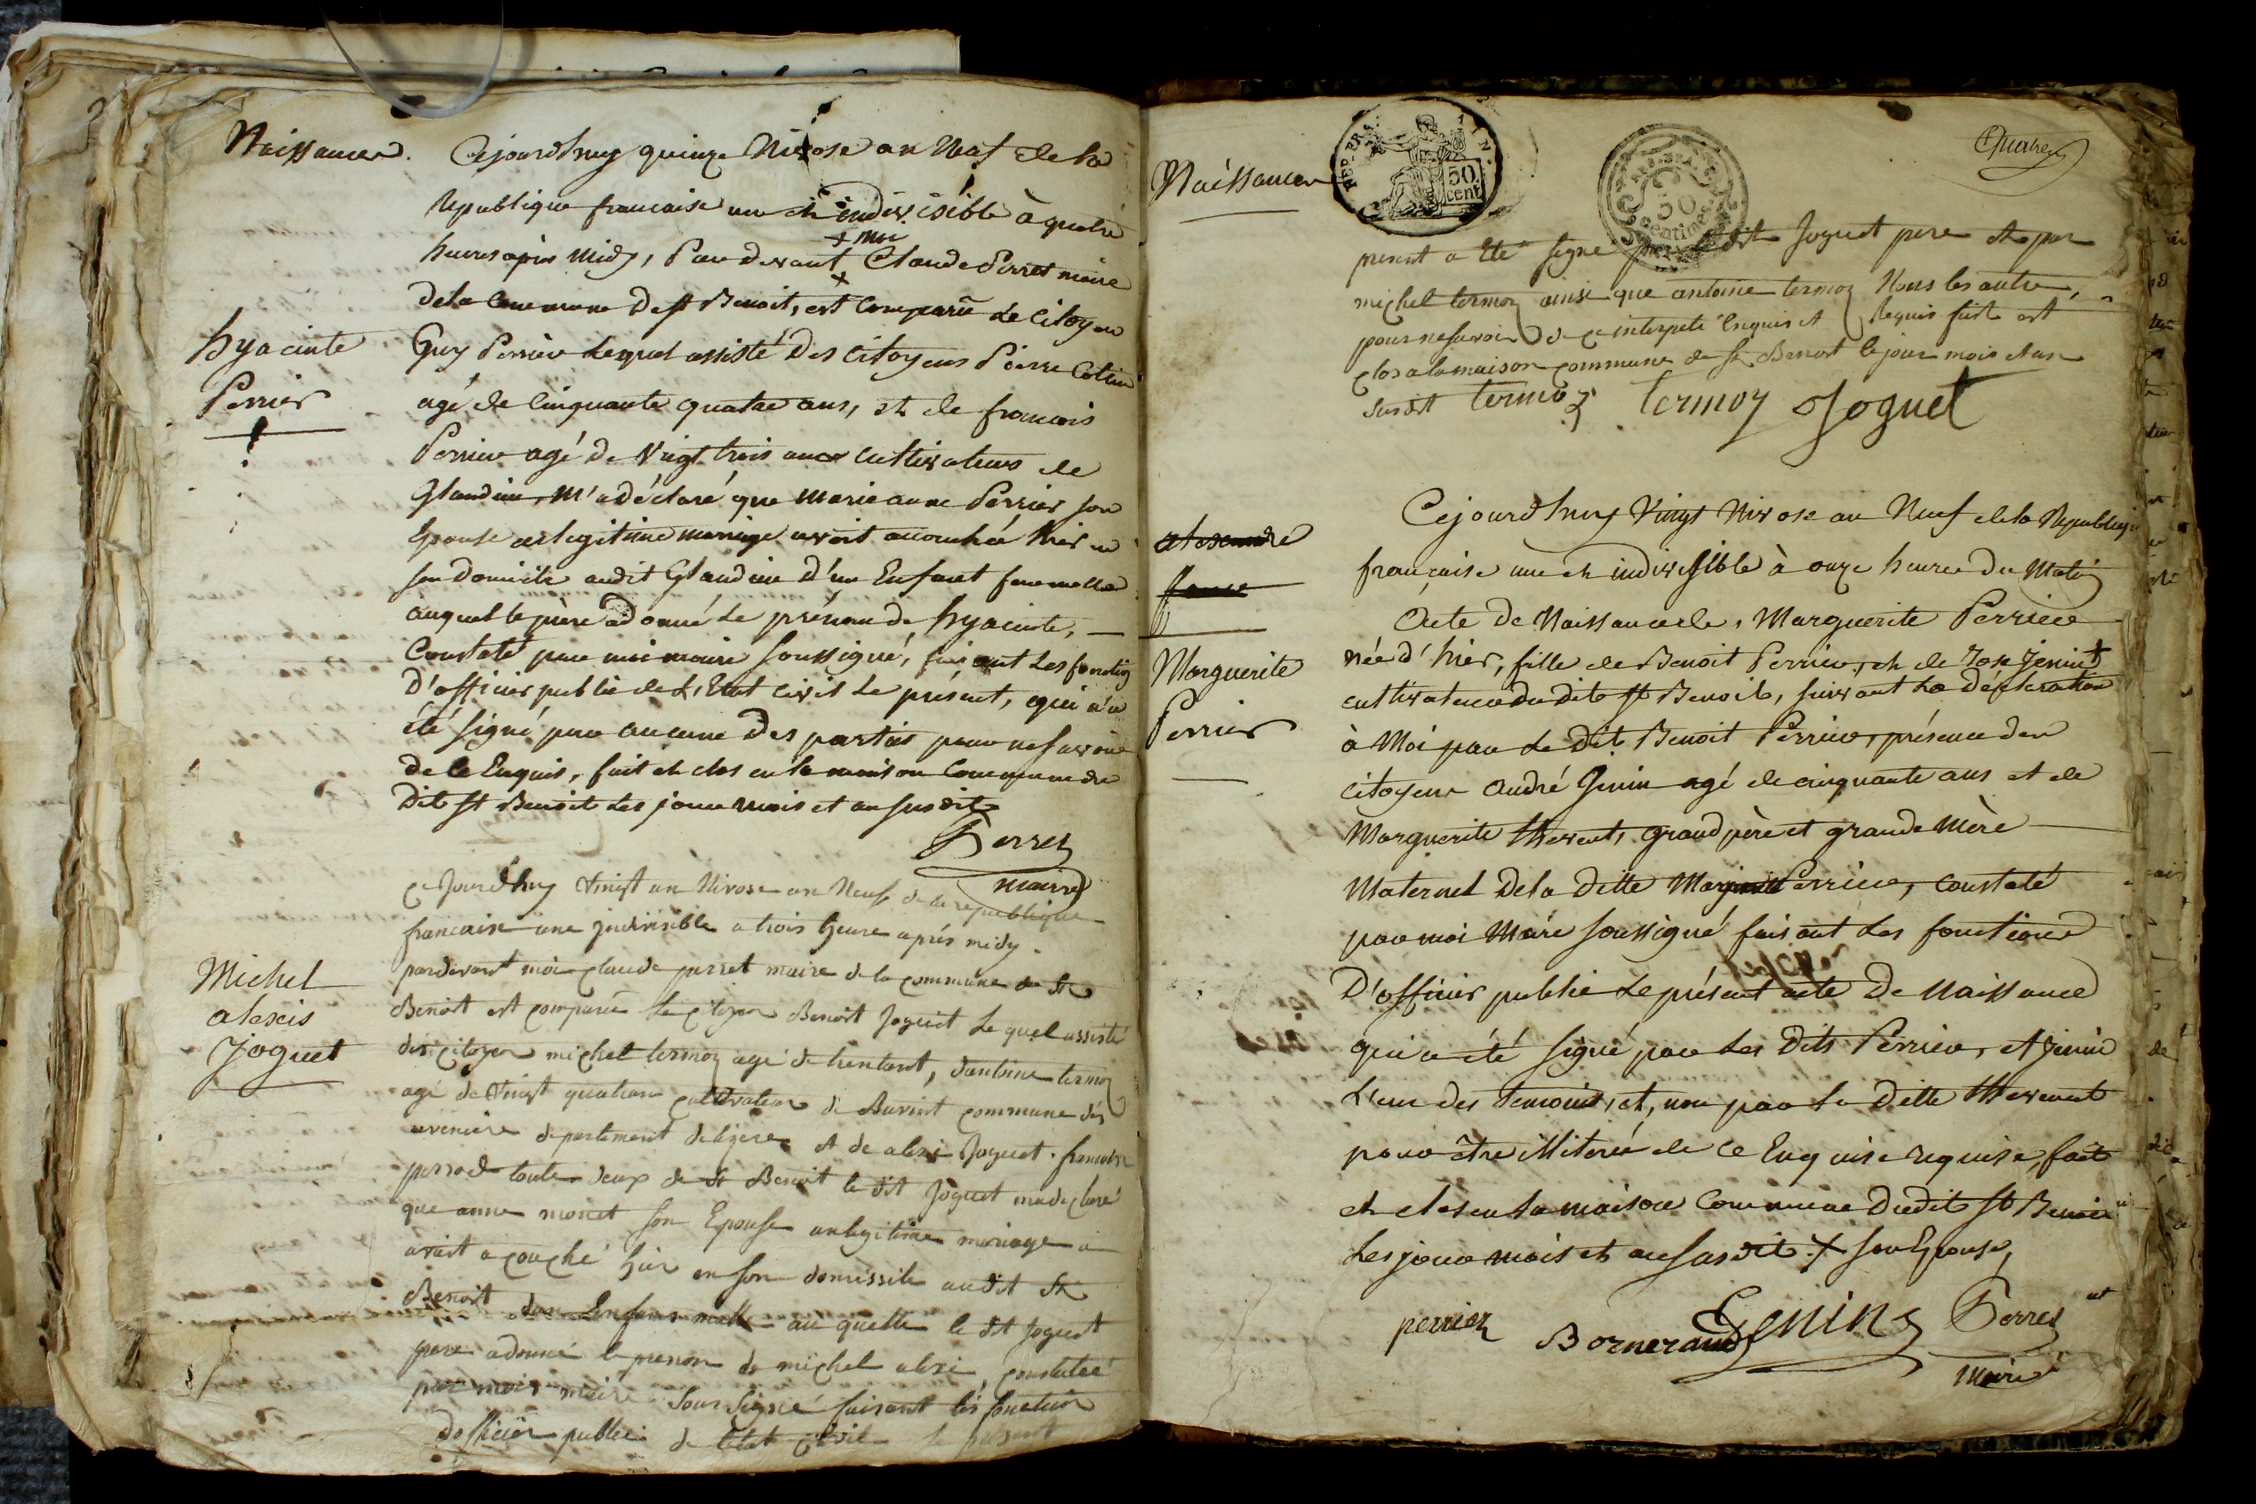 Naissances.
Cejourdhuy quinze Nivose an Neuf de la
Republique francaise une et indivisible à quatre
+ moi
heures après Midy, Pardevant Claude Perret maire
de la Commune de St Benoit, est Comparû Le Citoyen
hyacinte
Perrier
Guy Perrier Lequel assisté Des Citoyens Pierre
agé de Cinquante quatre ans, et de francois
Perrier agé de Vingt trois ans cultivateurs de
Glandieu, M'a déclaré que Marie anne Perrier son
Epouse en legitime mariage avoit accouchée hier en
son Domicile audit Glandieu D'un Enfant femmelle
auquel le père a donné Le prénom de hyacinte,
Constaté par moi maire soussigné, faisant Les fonctions
D'officier public de L'Etat civil Le présent, qui n'a
été signé par aucune Des parties pour ne savoir
de Ce Enquis, fait et clos en la maison Commune du
dit St Benoit Les jour mois et an susdit
Perret
maire
Ce Jourdhuy Vingt un Nivose an Neuf de la republique
francaise une indivisible a trois heure après midy
pardevant moi claude perret maire de la commune de St
Benoit est comparû Le Citoyen Benoit Joguet Le quel assisté
Michel
alexis
Joguet
des citoyen michel termoz agé de trente, dantoine termoz
agé de Vingt quatre cultivateur de commune des
avenieres departement de lizere et de alexi Joguet francoise
toute deux de St Benoit le dit Joguet ma declaré
que anne monet son Epouse en legitime mariage
avoit acouché hier en son domissile audit St
Benoit dun Enfans malle au quelle le dit Joguet
pere a donné le prenon de michel alexi, constateé
par moi maire sous Signé faisant les fonction
dofficier public de letat civil le present
Naissances
REP. FRA.
50
cent
50
centimes
Quatre
present a Eté signé par le dit Joguet pere et par
michel termoz ainsi que antoine termoz Nous les autre,
pour ne savoir de ce interpelé Enquis et Requis fait et
clos a la maison commune de St Benoit le jour mois et an
susdit termoz termoz Joguet
Cejourdhuy Vingt Nivose an Neuf de la Republique
française une et indivisible à onze heures du Matin
Acte de Naissance de, Marguerite Perrier
Marguerite
Perrier
née d'hier, fille de Benoit Perrier, et de Jenin +
cultivateurs du dit St Benoit, suivant La Déclaration
à Moi par Le Dit Benoit Perrier, présence des
citoyens André Jenin agé de cinquante ans et de
Marguerite thevent, Grand père et grande Mère
Maternel De la Ditte Marguerite Perrier, constaté
par moi Maire soussigné faisant Les fonctions
D'officier public Le présent acte De Naissance
qui a été signé par Les Dits Perrier, et Jenin
L'un des temoins, et, non par La Ditte thevent
pour être illiterée de Ce Enquise requise, fait
et clos en La maison Commune Dudit St Benoit
Les jour mois et an susdit + son Epouse,
perrier
Bornerand
Genin
Perret
maire